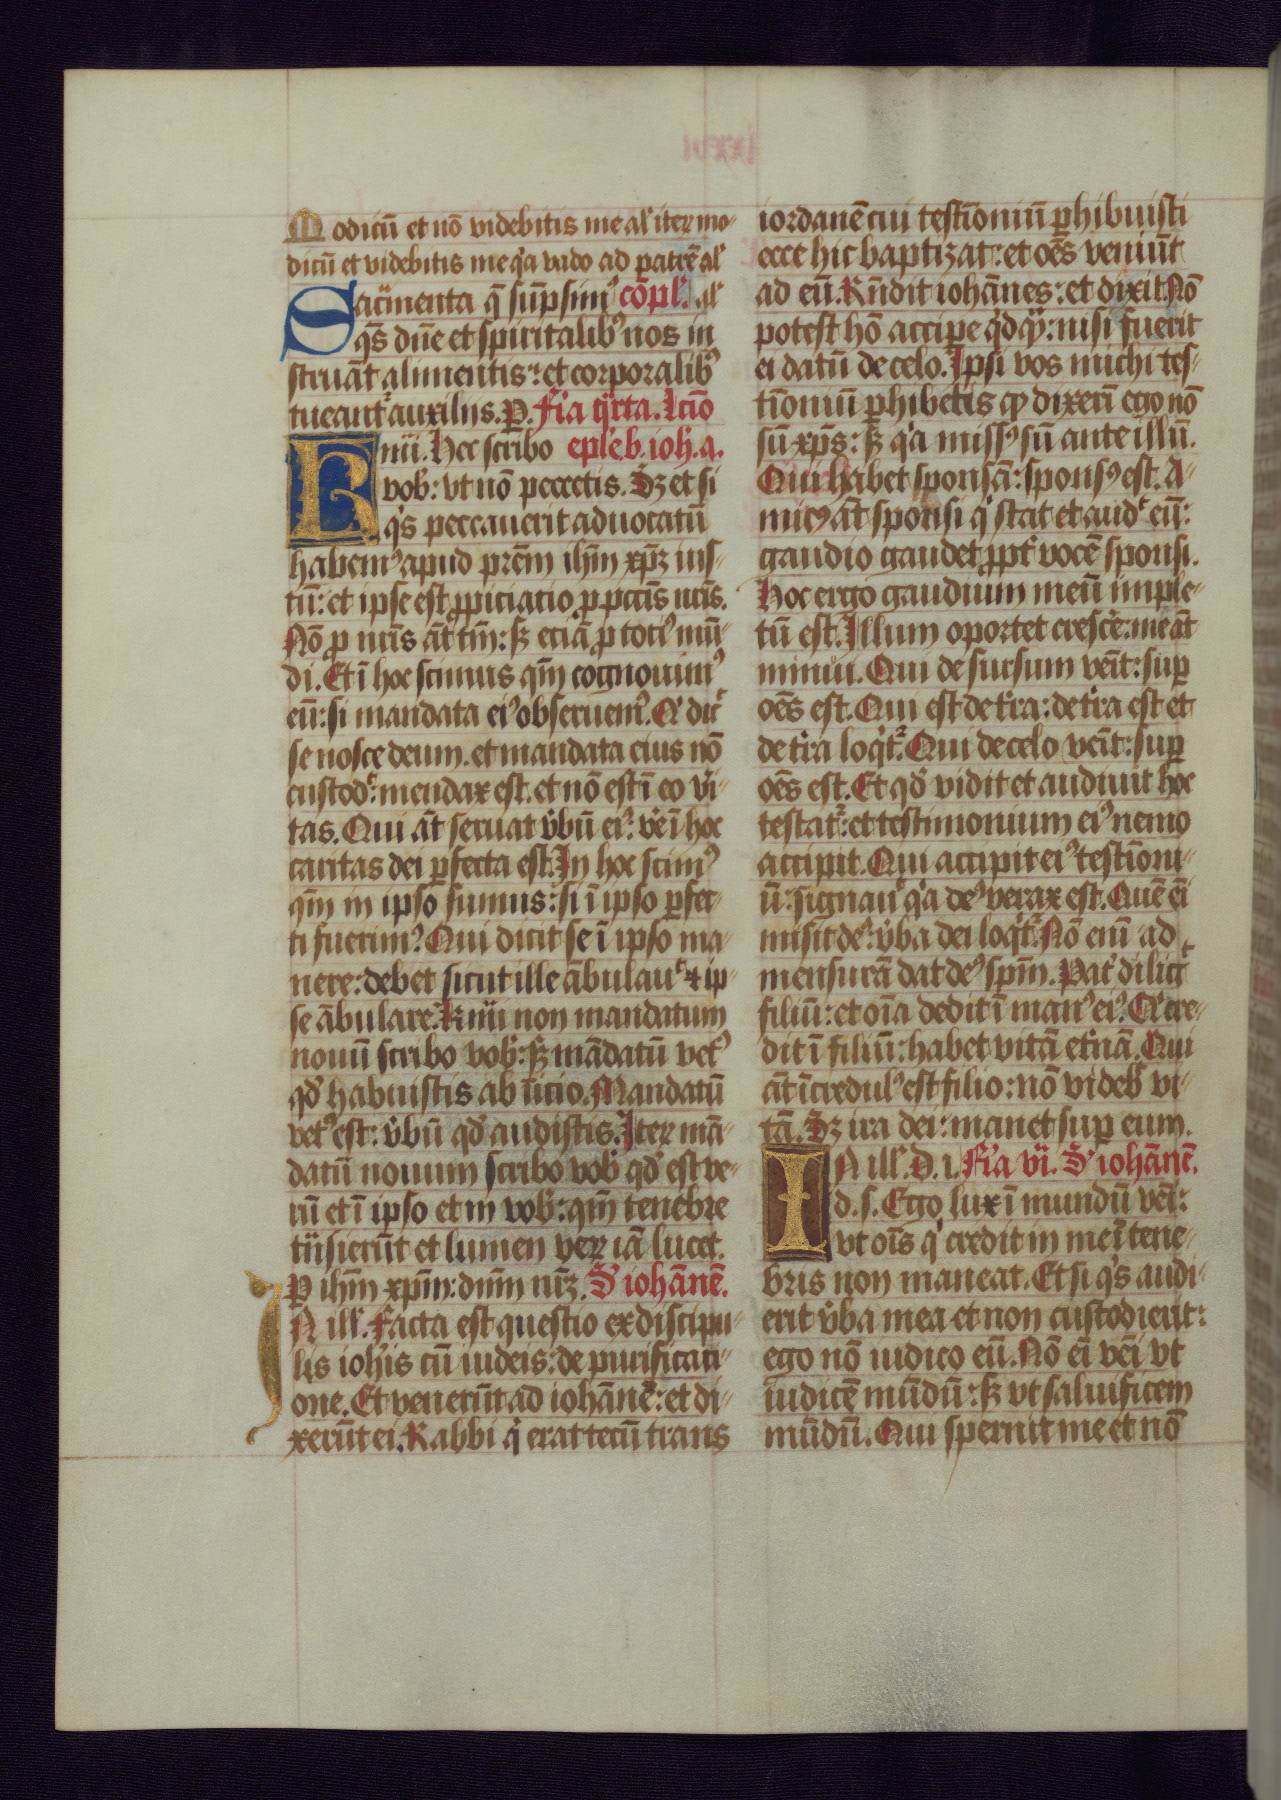 Modicū et nō videbitis me al' iteꝝ mo-
dicū et videbitis me q̇a vado ad patrē al'
Sacͥmenta q̄ sūpsimꝰ cōpl'. al'
q̄s dn̄e et spiritalibꝰ nos in
struāt alimentis: et corporalibꝰ
tueantᷣ auxilijs. P. Fīa q̈rta. Lcīo
Rmi. Hec scribo eple b. ioh. a.
vob': vt nō peccetis. Sꝫ et si
q's peccauerit aduocatū
habemꝰ apud prēm ih̄m xp̄ꝫ ius-
tū: et ipse est ꝓpiciatio ꝓ pctīs nr̄is.
Nō ꝓ nr̄is āt tm̄: sꝫ eciā ꝓ totiꝰ mū-
di. Et ī hoc scimus qm̄ cognouimꝰ
eū: si mandata eiꝰ obseruemꝰ. Q' dic̄
se nosce deum. et mandata eius nō
custod': mendax est. et nō est ī eo v'i-
tas. Qui āt seruat v̇bū eiꝰ: v'e ī hoc
caritas dei ꝑfecta est. In hoc scimꝰ
qm̄ in ipso sumus: si ī ipso ꝑfec-
ti fuerimꝰ. Qui dicit se ī ipso ma-
nere: debet sicut ille ābulau' ⁊ ip-
se ābulare. Rmi non mandatum
nouū scribo vob': sꝫ mādatū vetꝰ
qd' habuistis ab īicio. Mandatū
vetꝰ est: v̇bū qd' audistis. Iteꝝ mā-
datū nouum scribo vob' qd' est ve-
rū et ī ipso et in vob': qm̄ tenebre
trāsierūt et lumen veꝝ iā lucet.
P ih̄m xp̄m: dn̄m nr̄ꝫ. S' iohānē.
IN ill'. Facta est questio ex discipu-
lis ioh'is cū iudeis: de purificati-
one. Et venerūt ad iohānē: et di-
xerūt ei. Rabbi q' erat tecū trans
iordanē cui testīoniū ꝑhibuisti
ecce hic baptizat: et oēs veniūt
ad eū. Rn̄dit iohānes: et dixit. Nō
potest hō accipe q'dqȝ: nisi fuerit
ei datū de celo. Ipsi vos michi tes-
tīoniū ꝑhibetis ꝙ dixerī ego nō
sū xp̄s: sꝫ q'a missꝰ sū ante illū.
Qui habet sponsā: sponsꝰ est. A-
micꝰ āt sponsi q' stat et aud' eū:
gaudio gaudet ꝓpt' vocē sponsi.
Hoc ergo gaudium meū imple-
tū est. Illum oportet cresc'e: me āt
minui. Qui de sursum vēit: suꝑ
oēs est. Qui est de t'ra: de t'ra est et
de t'ra loq'tᷣ. Qui de celo vēit: suꝑ
oēs est. Et qd' vidit et audiuit hoc
testatᷣ: et testimonium eiꝰ nemo
accipit. Qui accipit eiꝰ testīoni-
ū: signau' q'a deꝰ verax est. Quē eī
misit deꝰ: v̇ba dei loq'tᷣ. Nō enī ad
mensurā dat deꝰ sp̄m. Pat' diligͭ
filiū: et oīa dedit ī manꝰ eiꝰ. Q' cre-
dit ī filiū: habet vitā et'nā. Qui
āt īcredulꝰ est filio: nō videb' vi-
tā. Sꝫ ira dei: manet suꝑ eum.
IN ill'. D. i. Fīa vi. S' iohānē.
d. s. Ego lux ī mundū vēī:
vt oīs q' credit in me ī tene-
bris non maneat. Et si q's audi-
erit v̇ba mea et non custodierit:
ego nō iudico eū. Nō eī vēī vt
iudicē mūdū: sꝫ vt saluificem
mūdū. Qui spernit me et nō